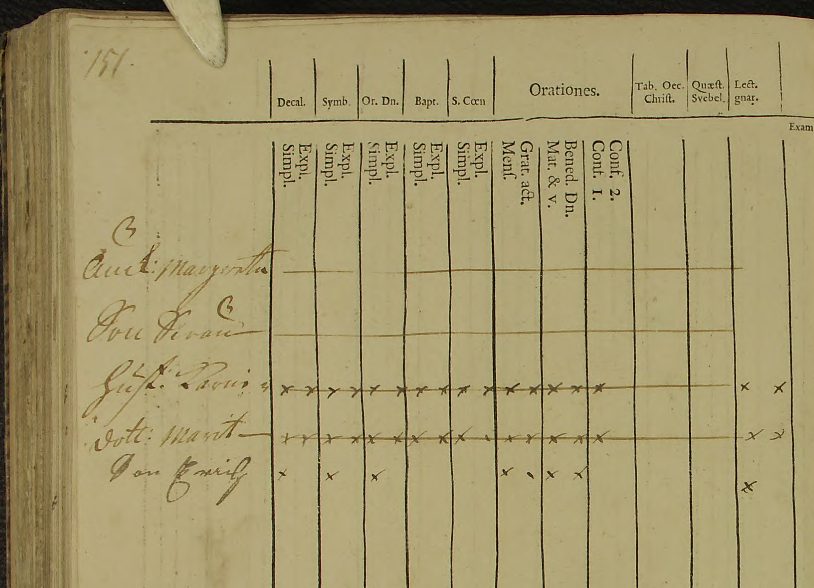 151.
Decal. Symb. Or. Dn. Bapt. S. Cœn Orationes. Tab. Oec. Christ. Quæst. Svebel. Lect. gnar.
Exam
Simpl. Expl. Simpl. Expl. Simpl. Expl. Simpl. Expl. Simpl. Expl. Menſ. Grat. act. Mat. & v. Bened. Dn. Conf. 1. Conf. 2.
Margreta
Son Swan
Hust. Karin x x x x x x x x x x x x x x x x x
dott: Marit x x x x x x x x x x x x x x x x
Son Erich x x x x x x x